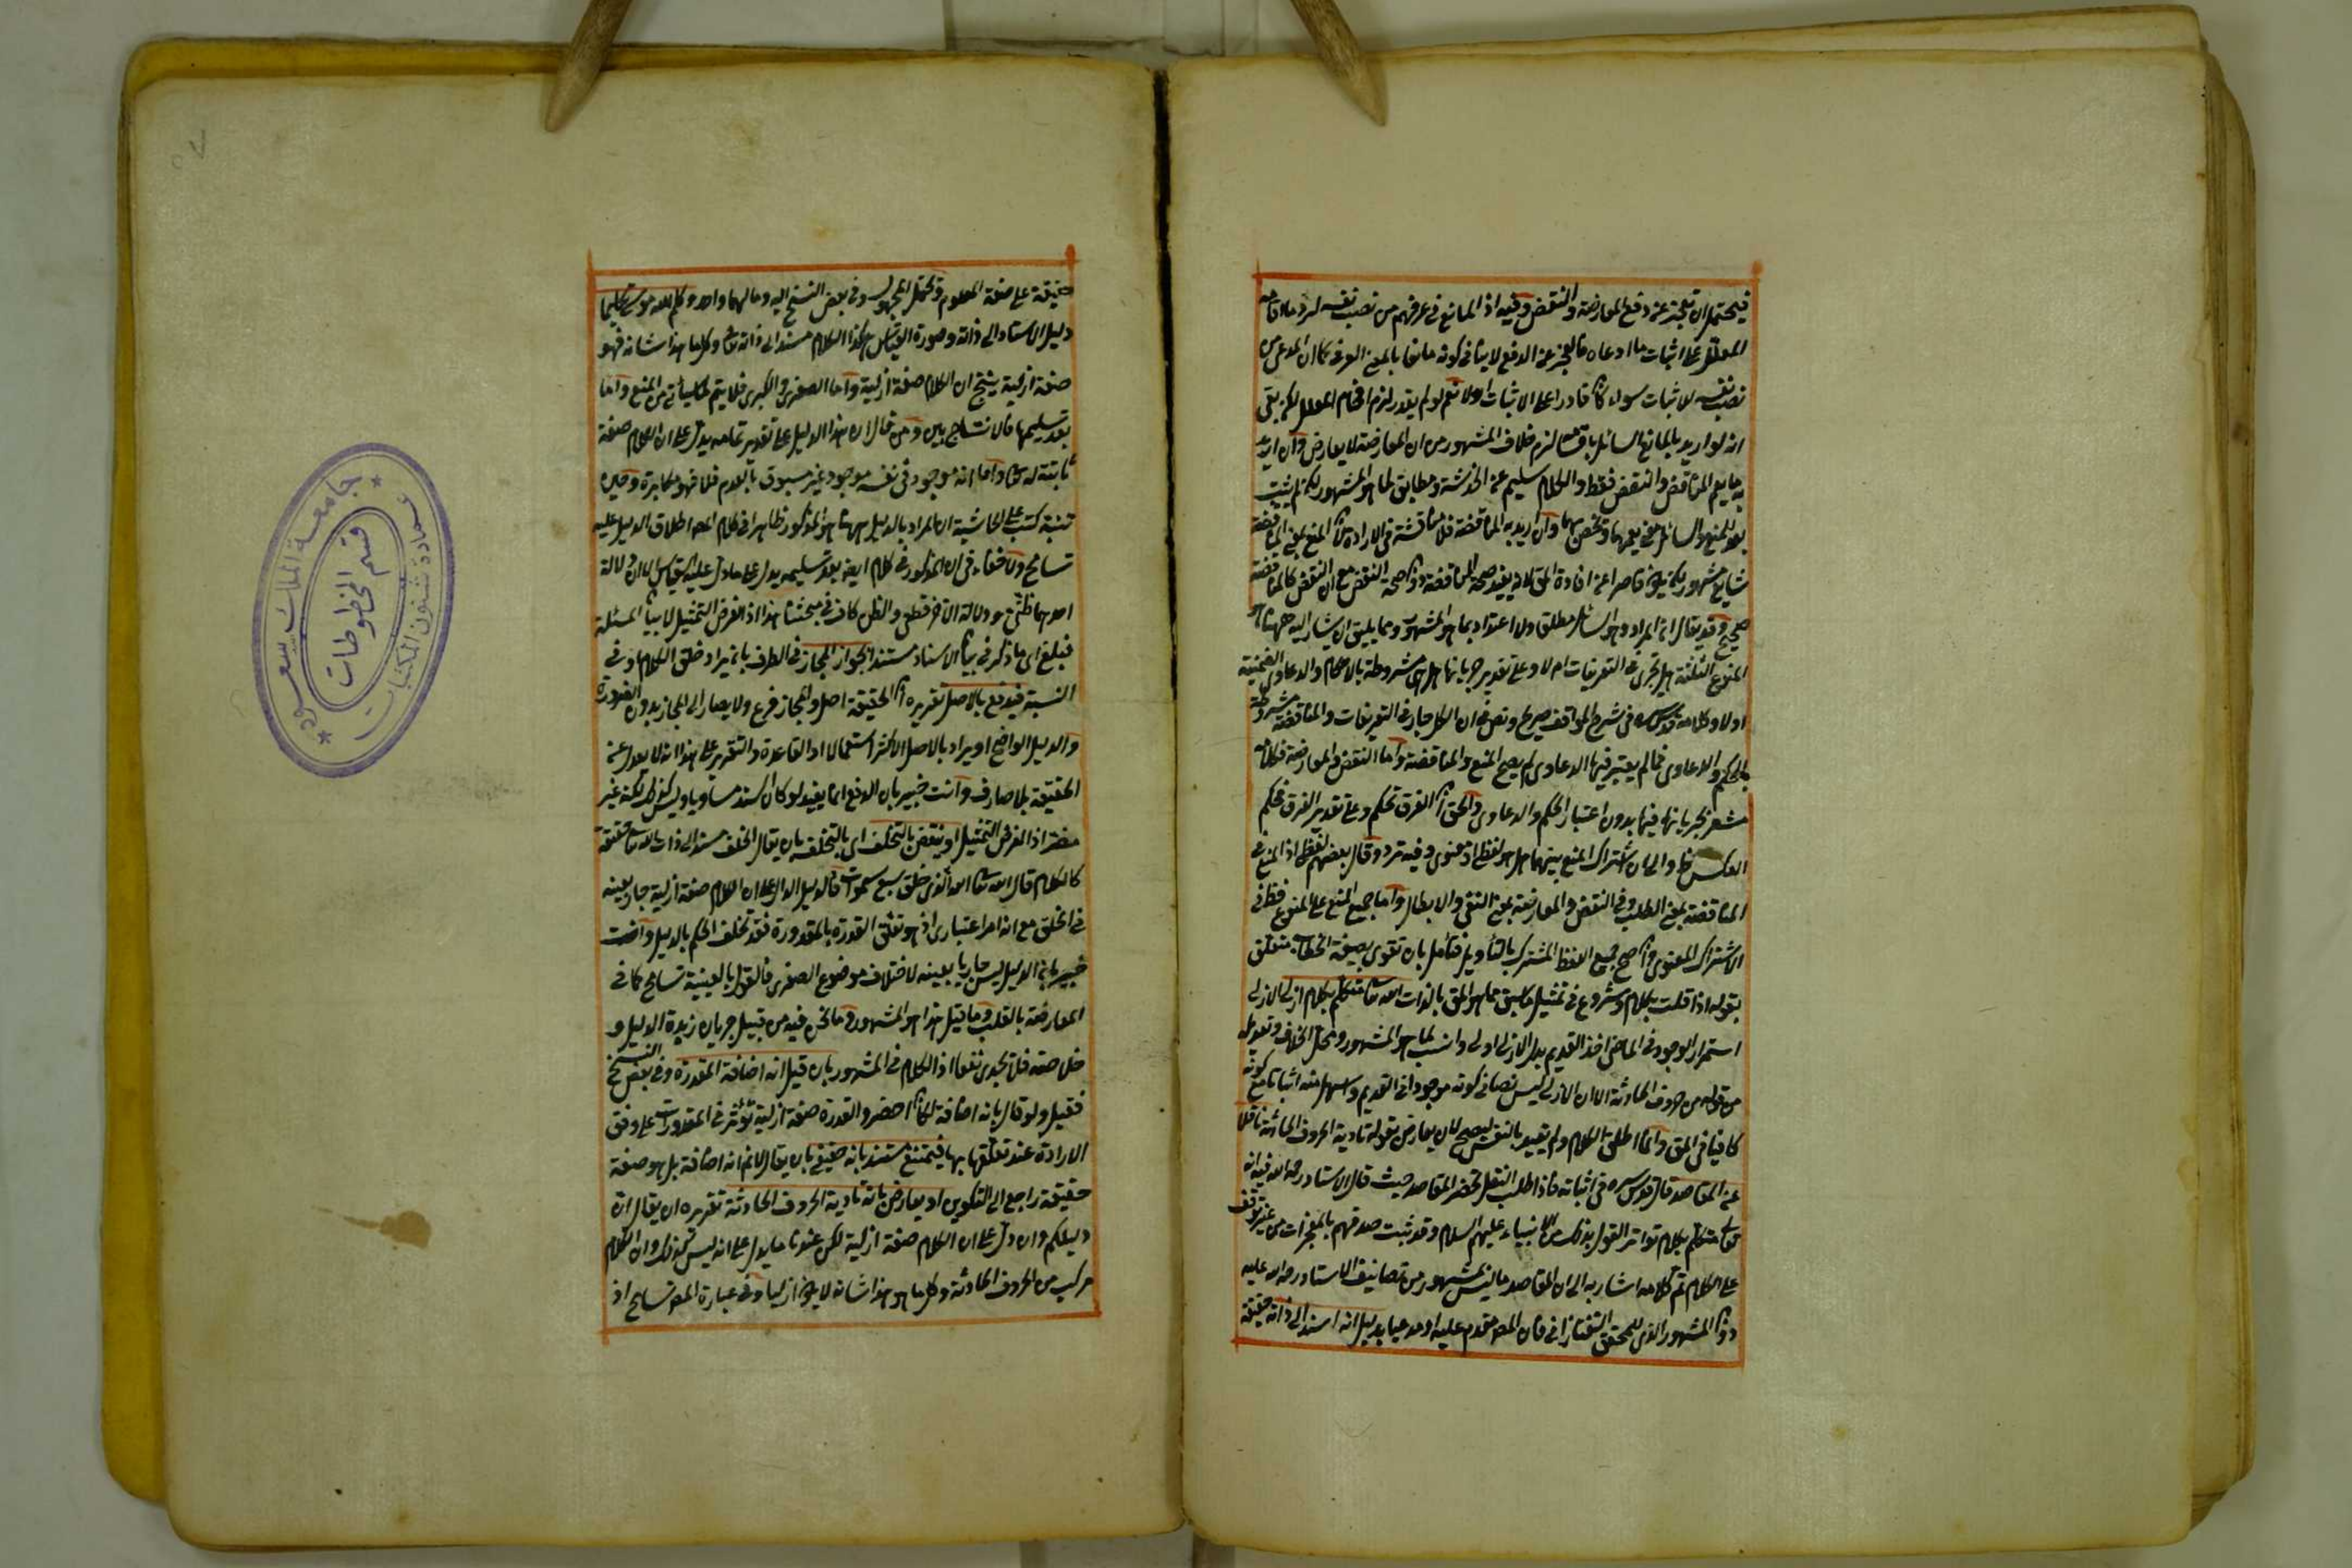 فيحتمل ان يعجز عن دفع المعارضة والنقض وفيه اذ المانع في عرفهم من نصب نفسه لرد ما اقامه
المعلل على اثبات ما ادعاه فالعجز عن الدفع لا ينافي كونه مانعا بالمعنى العرفي كما ان المدعي من
نصب نفسه لاثبات سواء كان قادرا على الاثبات اولا نعم لو لم يقدر لزم افحام المعلل لكن بقي
انه لو اريد بالمانع السائل باقسامه لزم خلاف المشهور من ان المعارضة لا يعارض وان اريد
به ما يعم المناقض والنقض فقط والكلام سليم عن الخدشة ومطابق لما هو المشهور لكن لم يثبت
بعد المنع والسائل بمعنى يعمهما وتخص بهما وان اريد به المناقضة فلا مناقشة في الارادة لان المنع بمعنى المناقضة
شايع مشهور لكن يكون قاصرا عن افادة المق لانه يفيد صحة المناقضة دون صحة النقض مع ان النقض كالمناقضة
صحيح وقد يقال ان المراد هو السائل مطلقا ولا اعتداد بما هو المشهور ومما يليق ان يشار اليه ههنا ان
المنوع الثلثة هل تجري في التعريفات ام لا وعلى تقدير جريانها هل هي مشروطة بالاحكام والدعاوي الضمنية
اولا وكلامه قدس سره في شرح المواقف صريح ونص في ان الكل جار في التعريفات والمناقضة مشروطة
بالحكم والدعاوي فما لم يعتبر فيها الدعاوي لم يصح المنع والمناقضة واما النقض والمعارضة فكلامه
مشعر بجريانهما فيها بدون اعتبار الحكم والدعاوي والحق ان الفرق تحكم وعلى تقدير الفرق فحكم
العكس والحال ان اشتراك المنع بينهما هل هو لفظي او معنوي وفيه تردد وقال بعضهم لفظي اذ المنع في
المناقضة بمعنى الطلب وفي النقض والمعارضة بمعنى النفي والابطال واما جميع المنع على المنوع فظ في
الاشتراك المعنوي وان صح جمع اللفظ المشترك بالتأويل فتأمل بان تقوى بصيغة الخطاب متعلق
بقوله اذا قلت بكلام وشروع في تمثيل ما سبق مما هو المق بالذات الله تعالى متكلم بكلام ازلي الازلي
استمرار الوجود في الماضي اخذ القديم بدل الازلي اولى وانسب لما هو المشهور ومحل الخلاف وتعويله
من قوله من حروف الحادثة الا ان الازلي ليس نصا في كونه موجودا في القديم وسهل منه اثباتا مع كونه
كافيا في المق وانما اطلق الكلام ولم يقيد بالنفس ليصح لان يعارض بقوله تادية الحروف الحادثة ناقلا
عن المقاصد قال قدس سره في اثباته فاذا طلب النقل تحضر المقاصد حيث قال الاستاد رحمه الله فيه انه
تعالى متكلم بكلام تواتر القول بذلك من الانبياء عليهم السلام وقد ثبت صدقهم بالمعجزات من غير توقف
على الكلام ثم كلامه اشار به الى ان المقاصد ما ليس مشهور من تصانيف الاستاد رحمه الله عليه
دون المشهور الذي للمحقق التفتازاني فان المصـ متقدم عليه او مدعيا بدليل انه اسند الى ذاته حقيقة
حقيقة على صفة المعلوم وتحتمل المجهول وفي بعض النسخ اليه ومالهما واحد وكلم الله موسى تكليما
دليل الاسناد الى ذاته وصورة القياس هكذا الكلام مسند الى ذاته تعالى وكل ما هذا شانه فهو
صفة ازلية ينتج ان الكلام صفة ازلية واما الصغرى والكبرى فلا يتم لما سيأتي من المنع واما
بعد تسليمها فالانتاج بين ومن قال ان هذا الدليل على تقدير تمامه يدل على ان الكلام صفة
ثابتة له تعالى واما انه موجود في نفسه موجود غير مسبوق بالعدم فلا فهو مكابرة وحين
تنبه كتب على الحاشية ان المراد بالدليل ههنا هو المذكور ظاهرا في كلام المصـ اطلاق الدليل عليه
تسامح ولا خفاء في ان المذكور في كلام ايضا بعد تسليمه يدل على ما دل عليه القياس الا ان دلالة
احدهما ظني ودلالة الآخر قطعي والظن كاف في مبحثنا هذا اذ الغرض التمثيل لا بيان المسئلة
فيلغ اي ما ذكر في بيان الاسناد مستندا بجواز المجاز في الطرف بان يراد خلق الكلام او في
النسبة فيدفع بالاصل تقريره ان الحقيقة اصل والمجاز فرع ولا يصار الى المجاز بدون القرينة
والدليل الواضح او يراد بالاصل الاكثر استعمالا او القاعدة والتقرير على هذا انه لا يعدل عن
الحقيقة بلا صارف وانت خبير بان الدفع انما يفيد لو كان السند مساويا وليس كذلك لكنه غير
مضر اذ الغرض التمثيل او ينقض بالتخلف اي بالتخلف بان يقال الخلق مسند الى ذات الله تعالى حقيقة
كالكلام قال الله تعالى الله الذي خلق سبع سموات فالدليل الدال على ان الكلام صفة ازلية جار بعينه
في الخلق مع انه امر اعتباري اذ هو تعلق القدرة بالمقدورة فقد تخلف الحكم بالدليل وانت
خبير بان الدليل ليس جاريا بعينه لاختلاف موضوع الصغرى فالقول بالعينية تسامح كما في
المعارضة بالقلب وما قيل هذا هو المشهور وما نحن فيه من قبيل جريان زبدة الدليل و
خلاصته فلا تجدي نفعا اذ الكلام في المشهور بان قيل انه اضافة المقدرة وفي بعض النسخ
فقيل ولو قال بانه اضافة لكان اخصر والقدرة صفة ازلية تؤثر في المقدورات على وفق
الارادة عند تعلقها بها فيمتنع مستندا بانه حقيقي بان يقال لانم انه اضافة بل هو صفة
حقيقة راجع الى التكوين او يعارض بانه تادية الحروف الحادثة تقريره ان يقال ان
دليلكم وان دل على ان الكلام صفة ازلية لكن عندنا ما يدل على انه ليس كذلك وان الكلام
مركب من الحروف الحادثة وكل ما هو هذا شانه لا يكون ازليا وفي عبارة المصـ تسامح اذ
جامعة الملك سعود
عمادة شئون المكتبات
قسم المخطوطات
٥٧